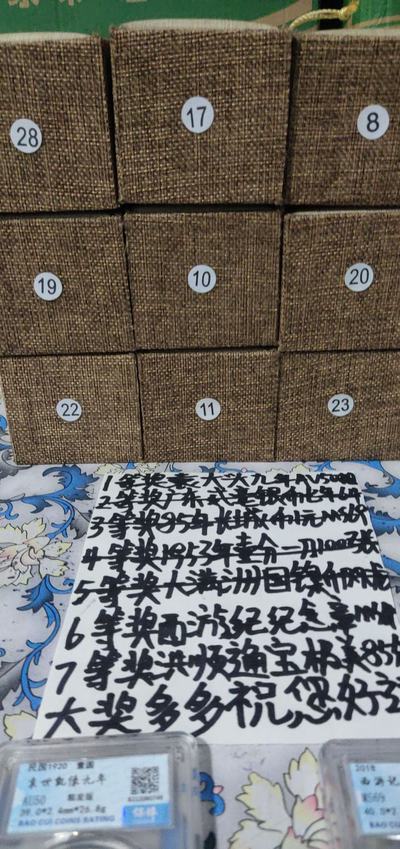 28
17
8
19
10
20
22
11
23
1等奖袁大头九年AU50
2等奖广东
3等奖85年长城币1元MS69
4等奖1953年壹分二刀100张
5等奖大满洲国镍币
6等奖西游纪纪念章
7等奖洪顺通宝极美85
大奖多多祝您好
民国1920 壹圆
袁世凯像九年
AU50 精发版
39.0*2.4mm*26.8g
BAO CUI COINS RATING
2018
西游记
MS69
40.0*2
BAO CUI